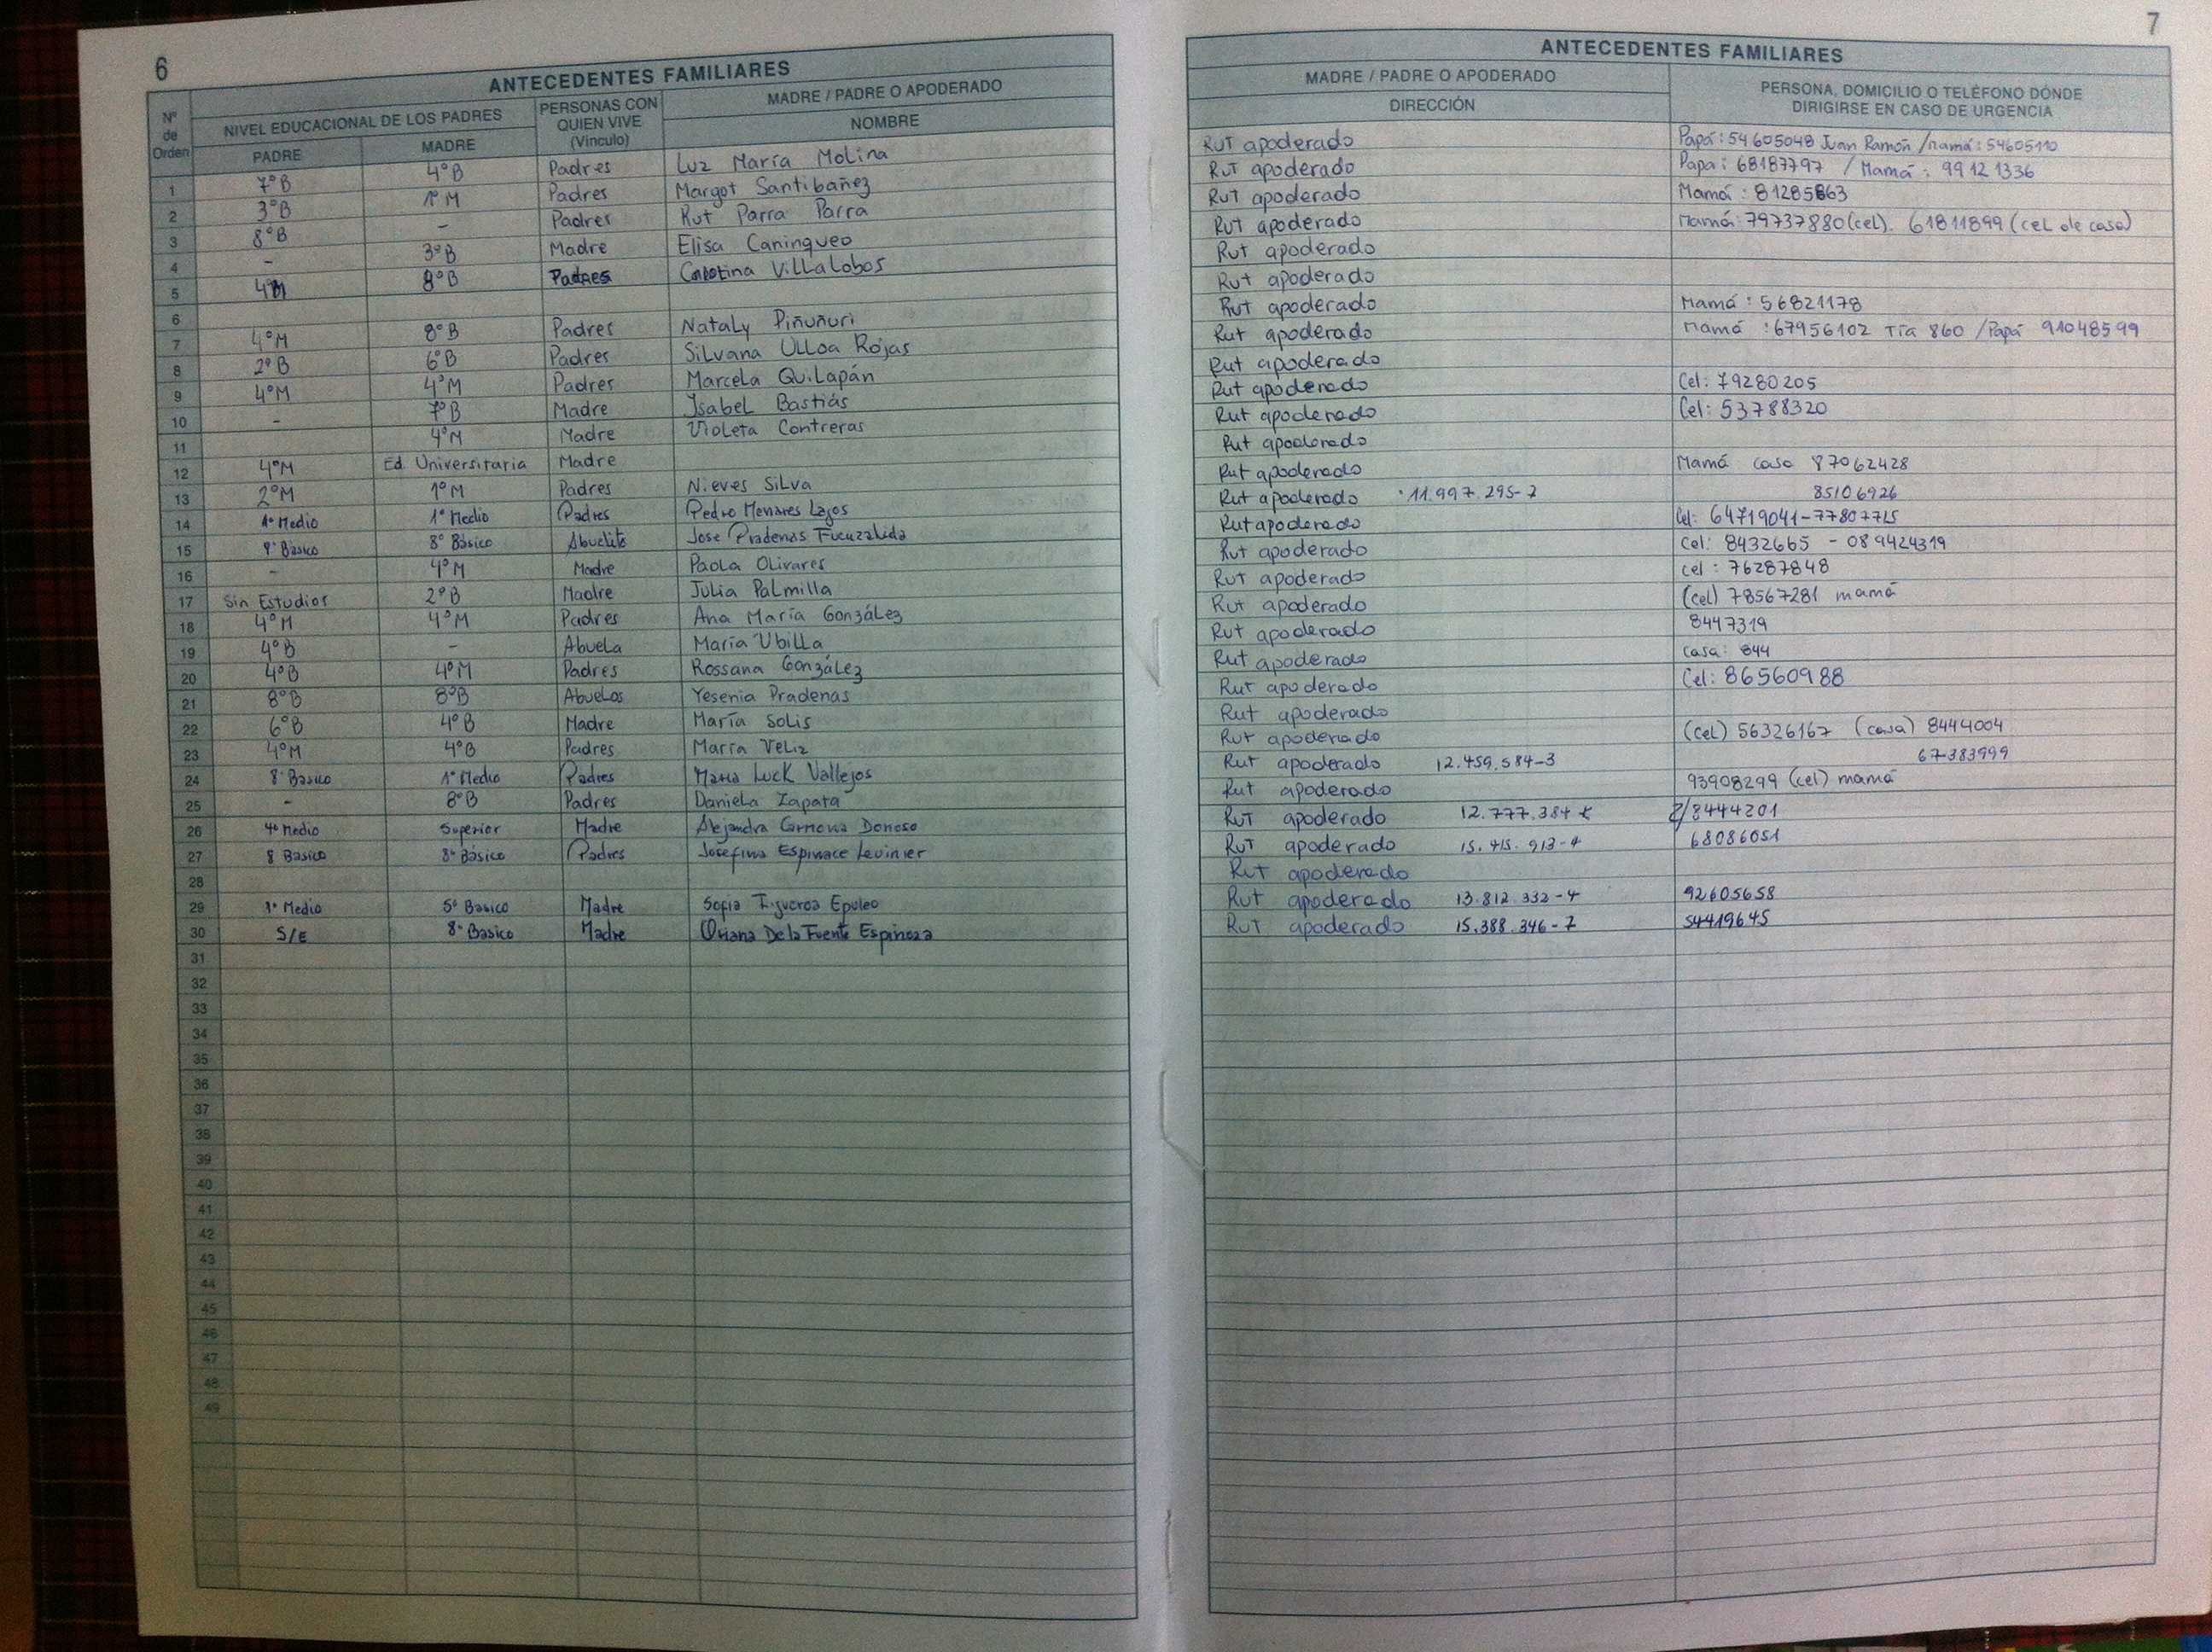 6
ANTECEDENTES FAMILIARES
Nº de Orden
NIVEL EDUCACIONAL DE LOS PADRES
PADRE
MADRE
PERSONAS CON QUIEN VIVE (Vínculo)
MADRE / PADRE O APODERADO
NOMBRE
1 7ºB 4ºB Padres Luz María Molina
2 3ºB 1º M Padres Margot Santibañez
3 8ºB - Padres Rut Parra Parra
4 - 3ºB Madre Elisa Caninqueo
5 4ºM 8ºB Padres Carolina Villalobos
6
7 4ºM 8ºB Padres Nataly Piñuñuri
8 2ºB 6ºB Padres Silvana Ulloa Rojas
9 4ºM 4ºM Padres Marcela Quilapán
10 - 7ºB Madre Ysabel Bastiás
11 4ºM Madre Violeta Contreras
12 4ºM Ed Universitaria Madre
13 2ºM 1ºM Padres Nieves Silva
14 1º Medio 1º Medio Padres Pedro Menares Lagos
15 8º Básico 8º Básico Abuelito Jose Pradenas Fuenzalida
16 - 4ºM Madre Paola Olivares
17 Sin Estudios 2ºB Madre Julia Palmilla
18 4ºM 4ºM Padres Ana María González
19 4ºB - Abuela María Ubilla
20 4ºB 4ºM Padres Rossana González
21 8ºB 8ºB Abuelos Yesenia Pradenas
22 6ºB 4ºB Madre María Solis
23 4ºM 4ºB Padres María Veliz
24 8º Básico 1º Medio Padres María Luck Vallejos
25 - 8ºB Padres Daniela Zapata
26 4º Medio Superior Madre Alejandra Carmona Donoso
27 8 Básico 8º Básico Padres Josefina Espinace Levinier
28
29 1º Medio 5º Básico Madre Sofia Figueroa Epuleo
30 S/E 8º Básico Madre Oriana De la Fuente Espinoza
31
32
33
34
35
36
37
38
39
40
41
42
43
44
45
46
47
48
49
7
ANTECEDENTES FAMILIARES
MADRE / PADRE O APODERADO
DIRECCIÓN
PERSONA, DOMICILIO O TELÉFONO DÓNDE DIRIGIRSE EN CASO DE URGENCIA
Rut apoderado Papá: 54605048 Juan Ramón / mamá: 54605110
Rut apoderado Papá: 68187797 / Mamá: 99121336
Rut apoderado Mamá: 81285863
Rut apoderado mamá: 79737880 (cel). 61811899 (cel de casa)
Rut apoderado
Rut apoderado
Rut apoderado Mamá: 56821178
Rut apoderado mamá: 67956102 Tía 860 / Papá 91048599
Rut apoderado
Rut apoderado Cel: 79280205
Rut apoderado Cel: 53788320
Rut apoderado
Rut apoderado Mamá casa 87062428
Rut apoderado 11.997.295-7 85106926
Rut apoderado Cel: 64719041-77807715
Rut apoderado Cel: 8432665 - 089424319
Rut apoderado cel: 76287848
Rut apoderado (cel) 78567281 mamá
Rut apoderado 8447319
Rut apoderado casa: 844
Rut apoderado Cel: 86560988
Rut apoderado
Rut apoderado (cel) 56326167 (casa) 8444004
Rut apoderado 12.459.584-3 67383999
Rut apoderado 93908299 (cel) mamá
Rut apoderado 12.777.384 8444201
Rut apoderado 15.415.913-4 68086051
Rut apoderado
Rut apoderado 13.812.332-4 92605658
Rut apoderado 15.388.346-7 54419645